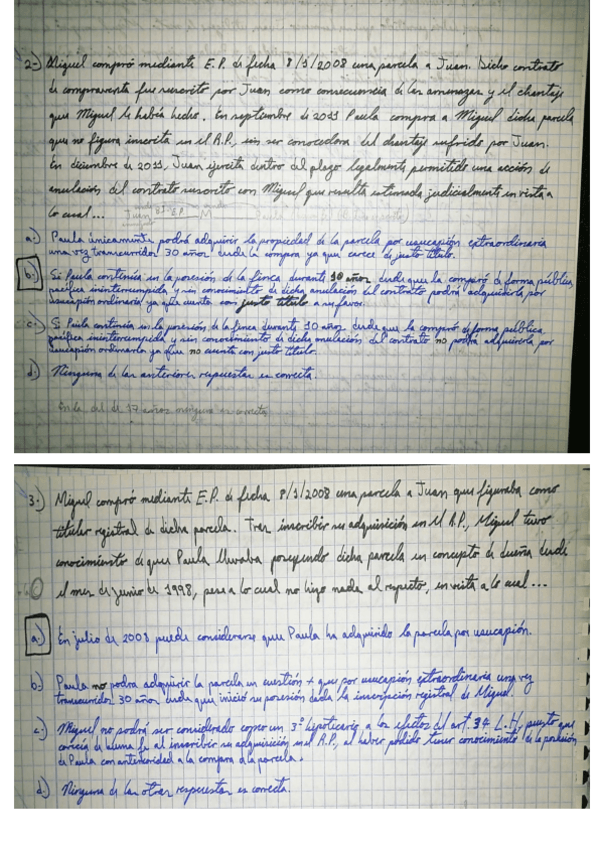 2-) Miguel compró mediante E.P. de fecha 8/3/2008 una parcela a Juan. Dicho contrato
de compraventa fue suscrito por Juan como consecuencia de las amenazas y el chantaje
que Miguel le había hecho. En septiembre de 2011 Paula compra a Miguel dicha parcela
que no figura inscrita en el R.P., sin ser conocedora del chantaje sufrido por Juan.
En diciembre de 2011, Juan ejercita dentro del plazo legalmente permitido una acción de
anulación del contrato suscrito con Miguel que resulta estimada judicialmente en vista a
lo cual...
a-) Paula únicamente podrá adquirir la propiedad de la parcela por usucapión extraordinaria
una vez transcurridos 30 años desde la compra ya que carece de justo título.
b-) Si Paula continúa en la posesión de la finca durante 10 años desde que la compró de forma pública,
pacífica ininterrumpida y sin conocimiento de dicha anulación del contrato podrá adquirirla por
usucapión ordinaria ya que cuenta con justo título a su favor.
c-) Si Paula continúa en la posesión de la finca durante 10 años desde que la compró de forma pública
pacífica ininterrumpida y sin conocimiento de dicha anulación del contrato no podrá adquirirla por
usucapión ordinaria ya que no cuenta con justo título.
d-) Ninguna de las anteriores respuestas es correcta.
En la del de 17 años ninguna es correcta
3-) Miguel compró mediante E.P. de fecha 8/3/2008 una parcela a Juan que figuraba como
titular registral de dicha parcela. Tras inscribir su adquisición en el R.P., Miguel tuvo
conocimiento de que Paula llevaba poseyendo dicha parcela en concepto de dueña desde
el mes de junio de 1998, pese a lo cual no hizo nada al respecto, en vista a lo cual...
a-) En julio de 2008 puede considerarse que Paula ha adquirido la parcela por usucapión.
b-) Paula no podrá adquirir la parcela en cuestión + que por usucapión extraordinaria una vez
transcurridos 30 años desde que inició su posesión dada la inscripción registral de Miguel.
c-) Miguel no podrá ser considerado como un 3º hipotecario a los efectos del art. 34 L.H, puesto que
carecía de buena fe al inscribir su adquisición en el R.P., al haber podido tener conocimiento de la posesión
de Paula con anterioridad a la compra de la parcela.
d-) Ninguna de las otras respuestas es correcta.